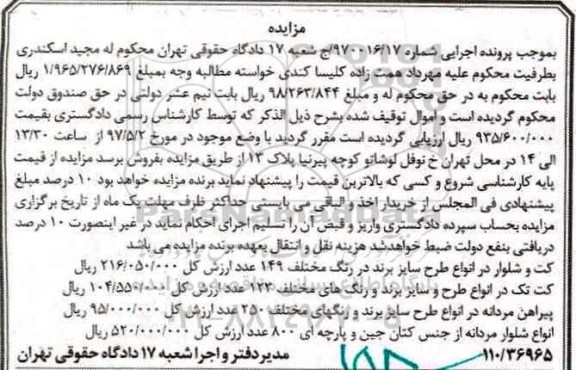 مزایده
بموجب پرونده اجرایی شماره ۹۷۰۰۱۶/۱۷/ج شعبه ۱۷ دادگاه حقوقی تهران محکوم له مجید اسکندری
بطرفیت محکوم علیه مهرداد همت زاده کلیسا کندی خواسته مطالبه وجه بمبلغ ۱/۹۶۵/۲۷۶/۸۶۹ ریال
بابت محکوم به در حق محکوم له و مبلغ ۹۸/۲۶۳/۸۴۴ ریال بابت نیم عشر دولتی در حق صندوق دولت
محکوم گردیده است و اموال توقیف شده بشرح ذیل الذکر که توسط کارشناس رسمی دادگستری بقیمت
۹۳۵/۶۰۰/۰۰۰ ریال ارزیابی گردیده است مقرر گردید با وضع موجود در مورخ ۹۷/۵/۲ از ساعت ۱۳/۳۰
الی ۱۴ در محل تهران خ نوفل لوشاتو کوچه پیرنیا پلاک ۱۳ از طریق مزایده بفروش برسد مزایده از قیمت
پایه کارشناسی شروع و کسی که بالاترین قیمت را پیشنهاد نماید برنده مزایده خواهد بود ۱۰ درصد مبلغ
پیشنهادی فی المجلس از خریدار اخذ و الباقی می بایستی حداکثر ظرف مهلت یک ماه از تاریخ برگزاری
مزایده بحساب سپرده دادگستری واریز و قبض آن را تسلیم اجرای احکام نماید در غیر اینصورت ۱۰ درصد
دریافتی بنفع دولت ضبط خواهدشد هزینه نقل و انتقال بعهده برنده مزایده می باشد
کت و شلوار در انواع طرح سایز برند در رنگ مختلف ۱۴۹ عدد ارزش کل ۲۱۶/۰۵۰/۰۰۰ ریال
کت تک در انواع طرح و سایز برند و رنگ های مختلف ۱۲۳ عدد ارزش کل ۱۰۴/۵۵۰/۰۰۰ ریال
پیراهن مردانه در انواع طرح سایز برند و رنگهای مختلف ۲۵۰ عدد ارزش کل ۹۵/۰۰۰/۰۰۰ ریال
انواع شلوار مردانه از جنس کتان جین و پارچه ای ۸۰۰ عدد ارزش کل ۵۲۰/۰۰۰/۰۰۰ ریال
۱۱۰/۳۶۹۶۵ مدیر دفتر و اجرا شعبه ۱۷ دادگاه حقوقی تهران